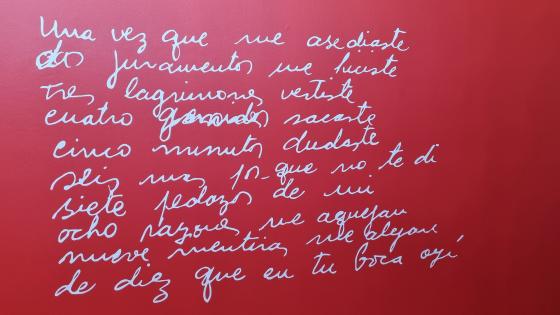 Una vez que me asediaste
dos juramentos me hiciste
tres lagrimones vertiste
cuatro gemidos sacaste
cinco minutos dudaste
seis más por que no te di
siete pedazos de mi
ocho razones me aquejan
nueve mentiras me alejan
de diez que en tu boca oyí